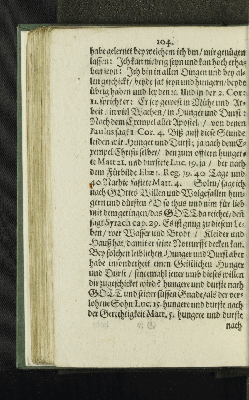 104.
habe gelernet bey welchem ich bin / mir genügen
lassen: Ich kan niedrig seyn und kan hoch erha-
ben seyn: Ich bin in allen Dingen und bey al-
len geschickt / beyde sat seyn und hungern / beyde
übrig haben und leyden ꝛc. Und in der 2. Cor:
11. spricht er: Er sey gewest in Mühe und Ar-
beit / in viel Wachen / in Hunger und Durst:
Nach dem Exempel aller Apostel / von denen
Paulus saget 1. Cor. 4. Biß auff diese Stunde
leiden wir Hunger und Durst; ja nach dem Ex-
empel Christi selbst / den zum offtern hunger-
te Matt 21. und durstete Luc. 19. ja / der nach
dem Fürbilde Eliæ 1. Reg. 19. 40 Tage und
40 Nachte fastete Matt. 4. Solin / sage ich
nach GOttes Willen und Wolgefallen hun-
gern und dürsten / Die thus und nim für lieb
mit dem geringen / das GOTT da reichet; den
sagt Syrach cap. 29. Es ist gnug zu diesem Le-
ben / wer Wasser und Brodt / Kleider und
Hauß hat, damit er seine Notturfft decken kan.
Bey solchen leiblichen Hunger und Durst aber
habe insonderheit einen Geistlichen Hunger
und Durst / sintemahl jener umb dieses willen
dir zugeschicket wird: hungere und durste nach
GOTT und seiner süssen Gnade / als der ver-
lohrne Sohn Luc. 15. hungere und durste nach
der Gerechtigkeit Matt. 5. hungere und durste
nach